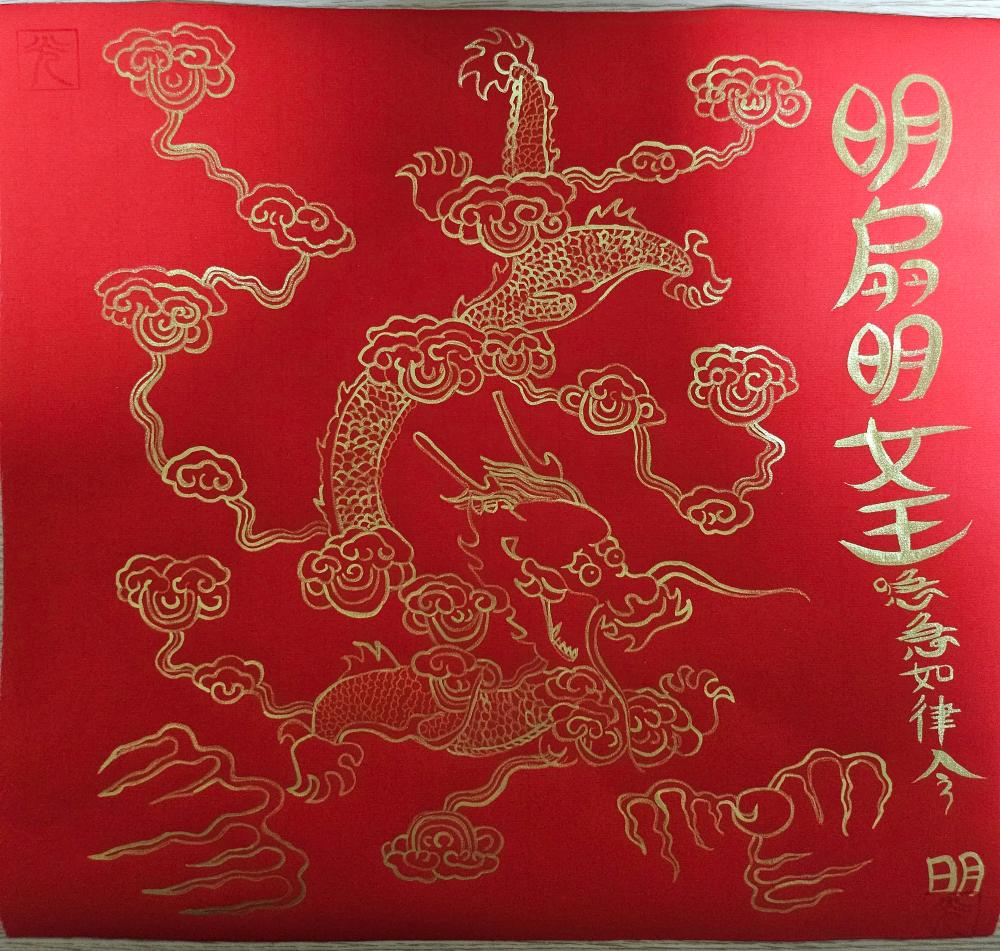 明扇明女王急急如律令
明